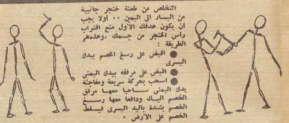 التخلص من طعنة خنجر جانبية
من اليسار الى اليمين ٠٠ اولا يجب
ان يكون هدفك الاول منع اقتراب
رأس الخنجر من جسمك ، وهذه هي
الطريقة :
● اقبض على رسغ الخصم بيدك
اليسرى
● اقبض على مرفقه بيدك اليمنى
● اسحب بحركة سريعة ومفاجئة
بدك اليمنى ساحبا معها مرفق
الخصم اليك ودافعا معها رسغ
الخصم بشدة باليد اليسرى فيسقط
الخصم على الأرض ٠